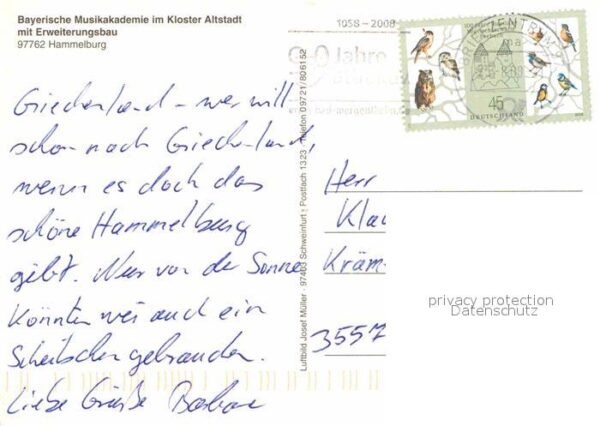 Bayerische Musikakademie im Kloster Altstadt
mit Erweiterungsbau
97762 Hammelburg
Griechenland – wer will
schon nach Griechenland,
wenn es doch das
schöne Hammelburg
gibt. Nur von der Sonne
könnten wir auch ein
Scheibchen gebrauchen.
Liebe Grüße Barbara
Luftbild Josef Müller · 97403 Schweinfurt · Postfach 1323 · Telefon 09721/806152
1058 - 2008
Jahre
BRIEFZENTRUM
45
DEUTSCHLAND
Herr
Klau
Kräm
3557
privacy protection
Datenschutz